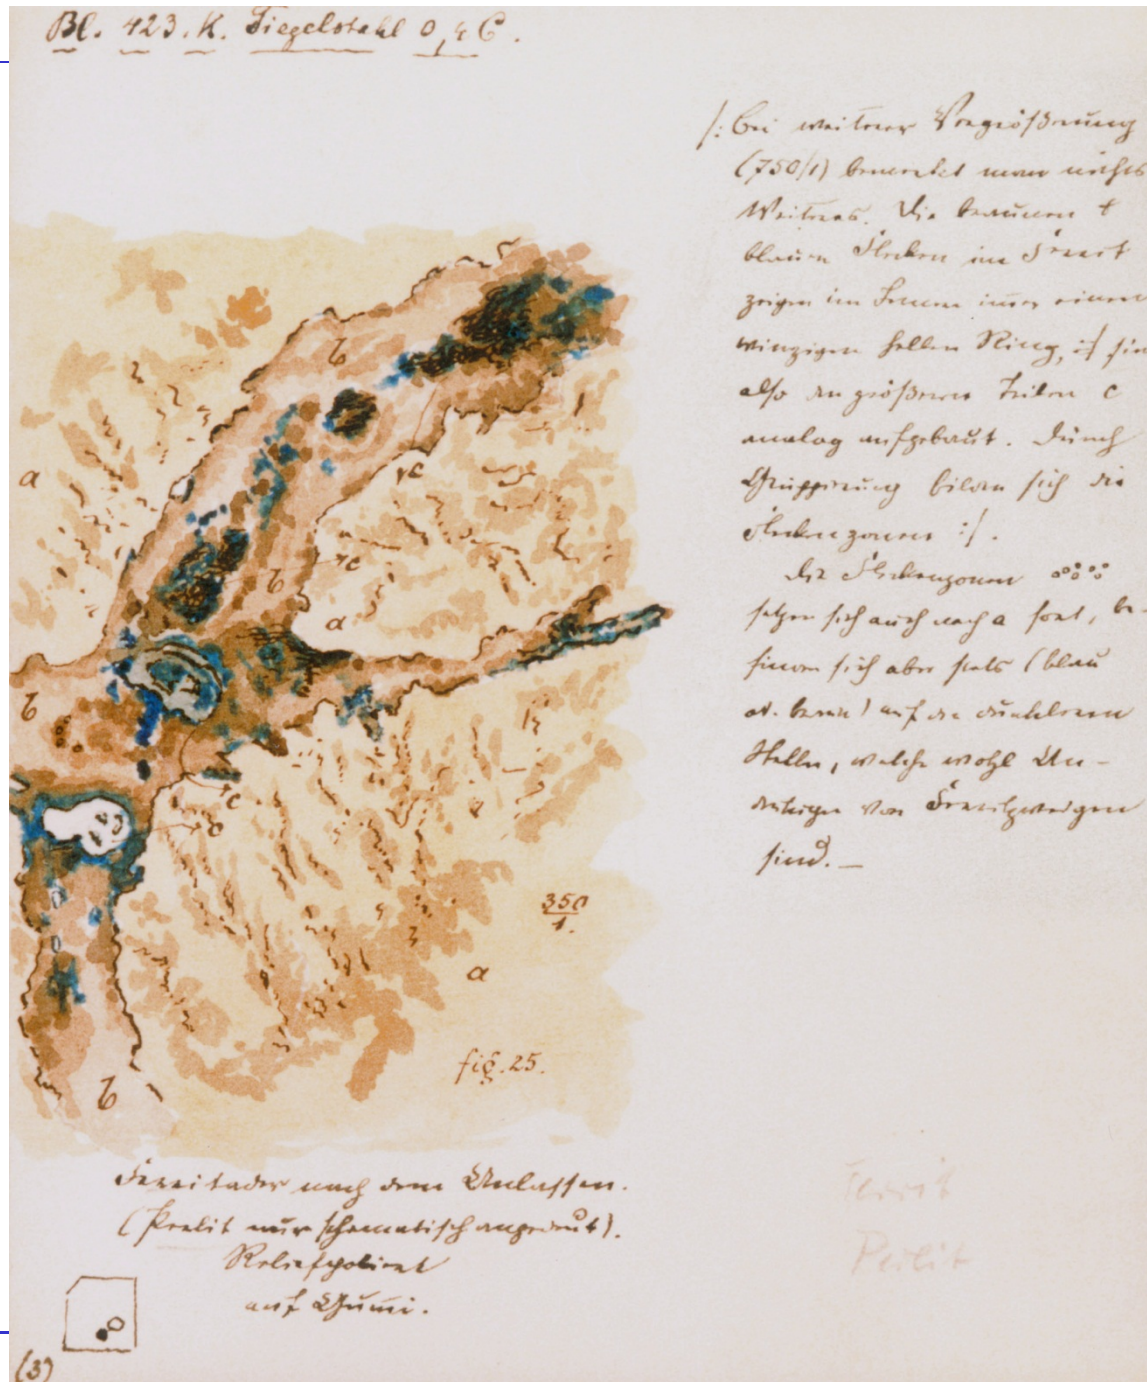 Bl. 423. K. Tiegelstahl 0,4 C.
/: Bei weiterer Vergrößerung
(750/1) bemerket man nichts
Weiteres. Die braunen +
blauen Flecken im Ferrit
zeigen im Innern immer einen
winzigen hellen Ring, sin
also den größeren Teilen c
analog aufgebaut. Durch
Gruppirung bilden sich die
Fleckenzonen :/.
Die Fleckenzonen
setzen sich auch nach a fort, be-
finden sich aber stets (blau
od. braun) auf den dunkleren
Stellen, welche wohl An-
zeigen von Ferritzweigen
sind. —
b
a
c
c
b
a
b
c
c
350
1.
a
fig. 25.
b
Ferritader nach dem Anlassen.
(Perlit nur schematisch angedeut.).
Reliefpoliert
auf Gummi.
Ferrit
Perlit
(3)